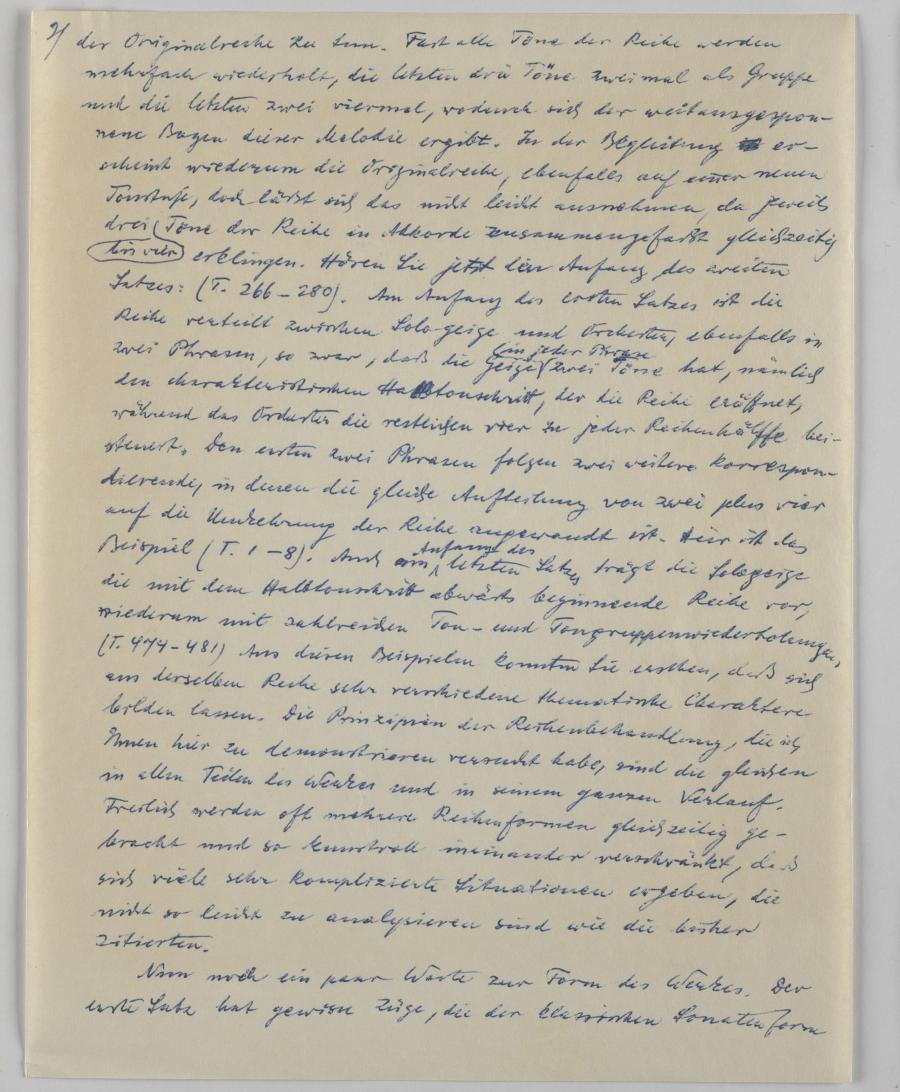 9/ der Originalreihe zu tun. Fast alle Töne der Reihe werden
mehrfach wiederholt, die letzten drei Töne zweimal als Gruppe
und die letzten zwei viermal, wodurch sich der weitausgespon-
nene Bogen dieser Melodie ergibt. In der Begleitung er-
scheint wiederum die Originalreihe, ebenfalls auf einer neuen
Tonstufe, doch lässt sich das nicht leicht ausnehmen, da jeweils
drei Töne der Reihe in Akkorde zusammengefasst gleichzeitig
bis vier
erklingen. Hören Sie jetzt den Anfang des zweiten
Satzes: (T. 266–280). Am Anfang des ersten Satzes ist die
Reihe verteilt zwischen Sologeige und Orchester, ebenfalls in
zwei Phrasen, so zwar, daß die Geige zwei Töne hat, nämlich
in jeder Phrase
den charakteristischen Halbtonschritt, der die Reihe eröffnet,
während das Orchester die restlichen vier zu jeder Reihenhälfte bei-
steuert. Den ersten zwei Phrasen folgen zwei weitere korrespon-
dierende, in denen die gleiche Aufteilung von zwei plus vier
auf die Umkehrung der Reihe angewandt ist. Hier ist das
Beispiel (T. 1–8). Auch am letzten Satzes trägt die Sologeige
Anfang des
die mit dem Halbtonschritt abwärts beginnende Reihe vor,
wiederum mit zahlreichen Ton- und Tongruppenwiederholungen,
(T. 474–481) Aus diesen Beispielen konnten Sie ersehen, daß sich
aus derselben Reihe sehr verschiedene thematische Charaktere
bilden lassen. Die Prinzipien der Reihenbehandlung, die ich
Ihnen hier zu demonstrieren versucht habe, sind die gleichen
in allen Teilen des Werkes und in seinem ganzen Verlauf.
Freilich werden oft mehrere Reihenformen gleichzeitig ge-
bracht und so kunstvoll ineinander verschränkt, daß
sich viele sehr komplizierte Situationen ergeben, die
nicht so leicht zu analysieren sind wie die bisher
zitierten.
Nun noch ein paar Worte zur Form des Werkes. Der
erste Satz hat gewisse Züge, die der klassischen Sonatenform